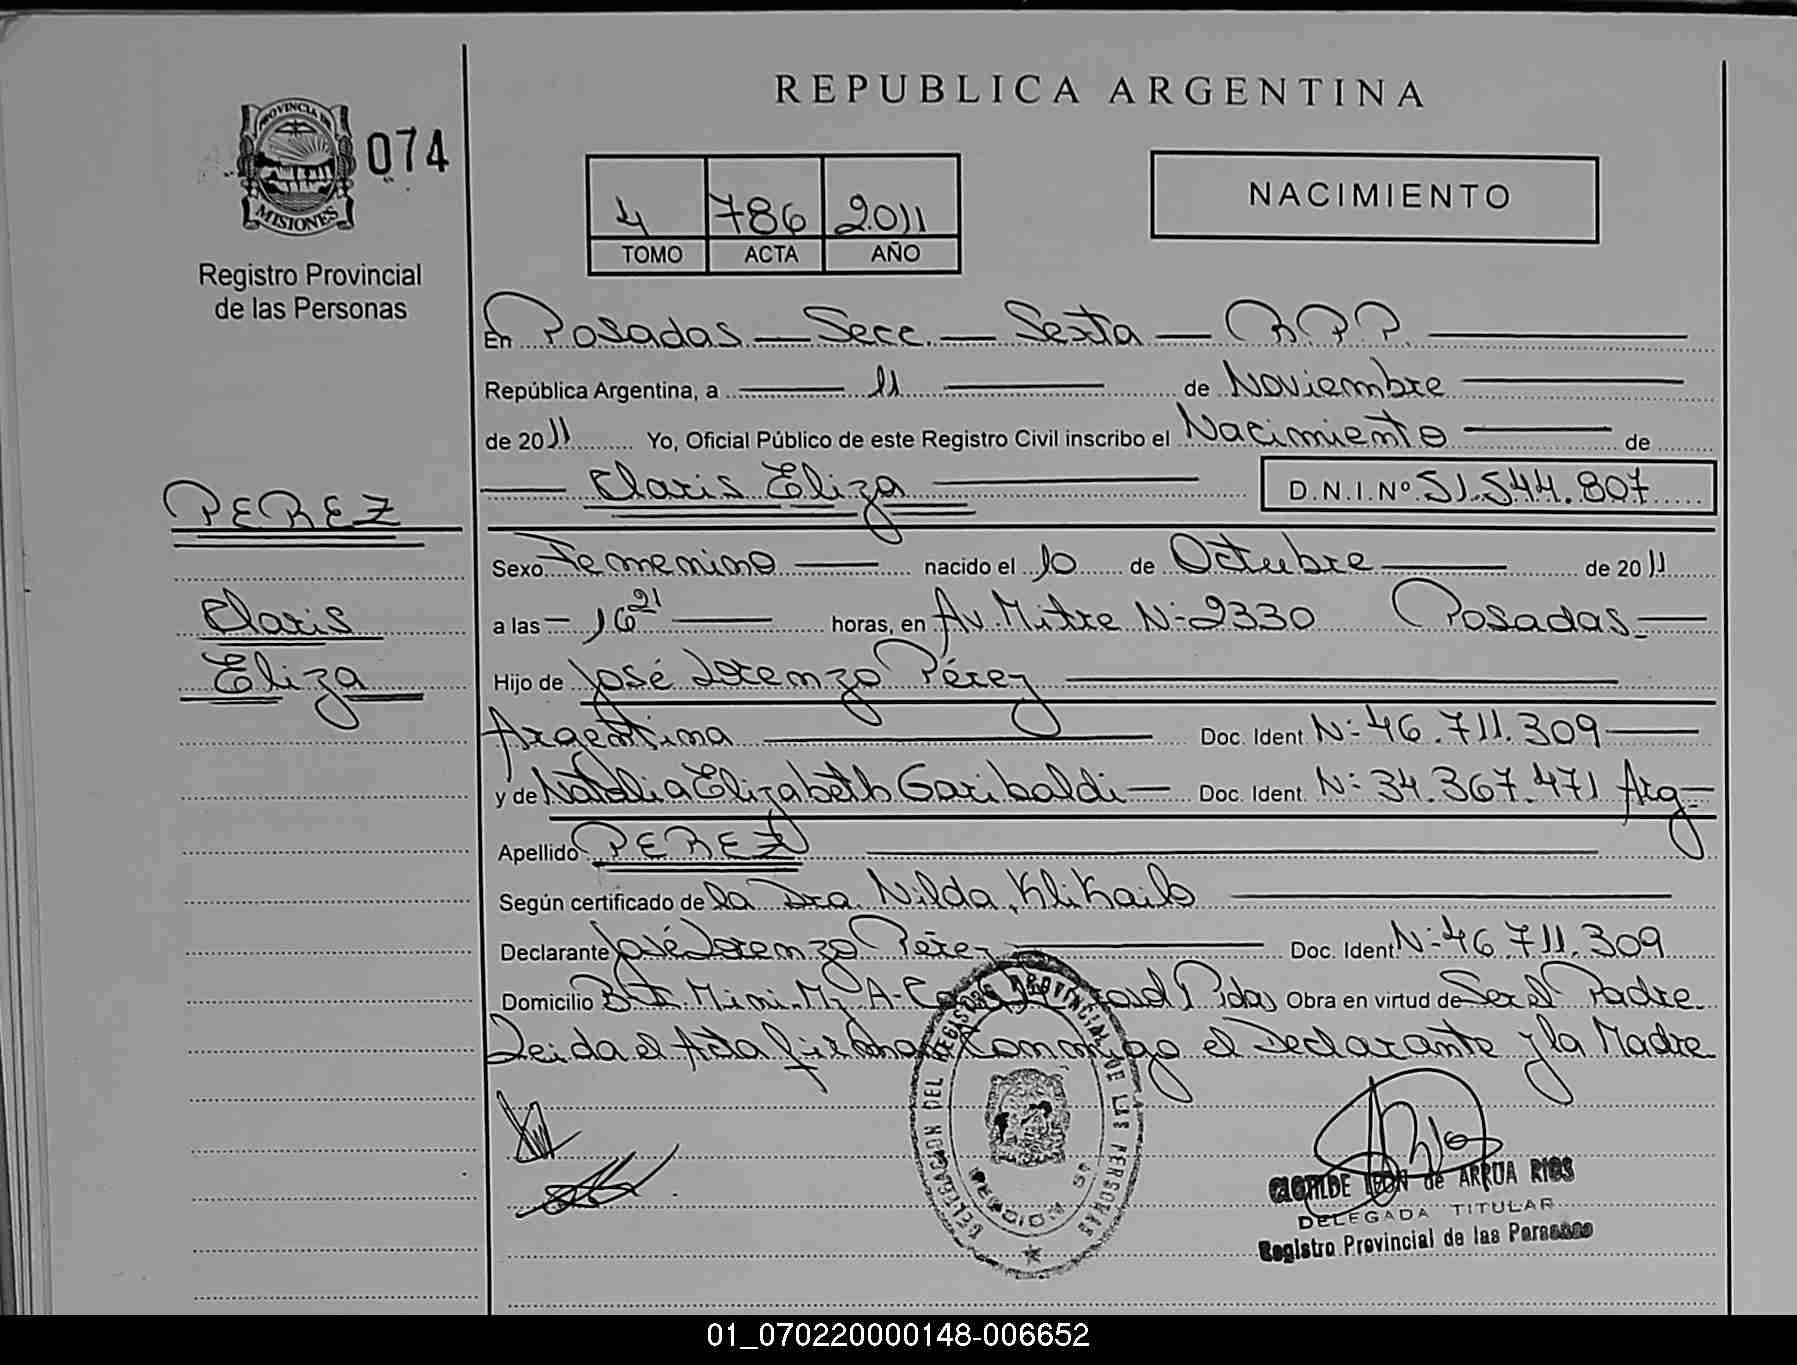 REPUBLICA ARGENTINA
PROVINCIA DE
MISIONES
074
Registro Provincial
de las Personas
4 786 2.011
TOMO ACTA AÑO
NACIMIENTO
En Posadas — Secc. — Sexta — R.P.P.
República Argentina, a 11 de Noviembre
de 2011 Yo, Oficial Público de este Registro Civil inscribo el Nacimiento de
Claris Eliza D.N.I.Nº 51.544.807
PEREZ
Claris
Eliza
Sexo Femenino nacido el 10 de Octubre de 2011
a las — 16 21 horas, en Av. Mitre N: 2330 Posadas.
Hijo de José Lorenzo Pérez
Argentina Doc. Ident. N: 46.711.309
y de Natalia Elizabeth Garibaldi — Doc. Ident. N: 34.367.471 Arg
Apellido PEREZ
Según certificado de la Dra. Nilda Klikailo
Declarante José Lorenzo Pérez Doc. Ident. N: 46.711.309
Domicilio B. Mini. Mz A- Pdas Obra en virtud de Ser el Padre.
Leida el Acta firman Conmigo el Declarante y la Madre
DELEGACION DEL REGISTRO PROVINCIAL DE LAS PERSONAS
CLOTILDE LEON de ARRUA RIOS
DELEGADA TITULAR
Registro Provincial de las Personas
01_070220000148-006652